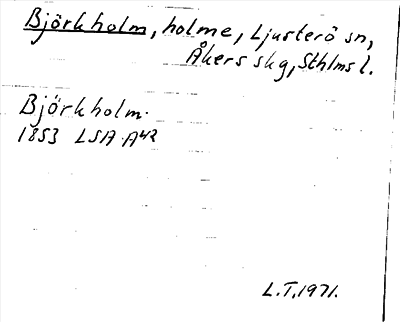 Björkholm, holme, Ljusterö sn,
Åkers skg, Sthlms l.
Björkholm.
1853 LSA A42
L.T.1971.